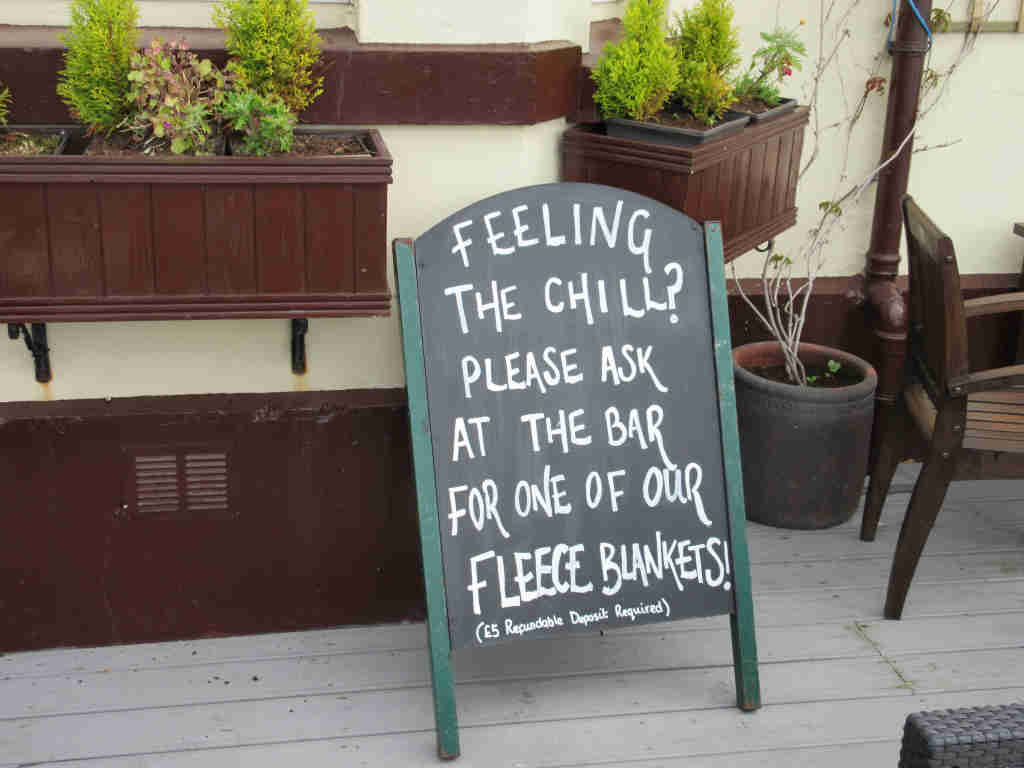 FEELING
THE CHILL?
PLEASE ASK
AT THE BAR
FOR ONE OF OUR
FLEECE BLANKETS!
(£5 Refundable Deposit Required)